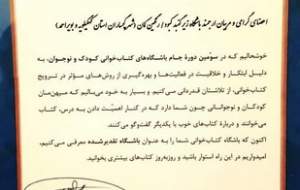 اعضای گرامی و مربیان ارجمند باشگاه زیر گنبد کبود ارگین کان (شهر گچساران استان کهگیلویه و بویراحمد)
خوشحالیم که در سوّمین دورهٔ جام باشگاه‌های کتاب‌خوانی کودک و نوجوان، به
دلیل ابتکار و خلاقیت در فعالیت‌ها و بهره‌گیری از روش‌های مؤثر در ترویج
کتاب‌خوانی، از تلاشتان قدردانی می‌کنیم و بسیار به خود می‌بالیم که میهن‌مان
کودکان و نوجوانانی چون شما دارد که در کنار اهمیّت دادن به درس، کتاب
می‌خوانند و دربارهٔ کتاب‌های خوب با یکدیگر گفت‌وگو می‌کنند.
اکنون که باشگاه کتاب‌خوانی شما را به عنوان باشگاه تقدیرشده معرفی می‌کنیم،
امیدواریم در این راه استوار باشید و روزبه‌روز کتاب‌های بیشتری بخوانید.